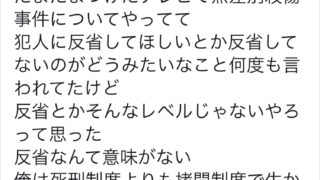 事件についてやってて
犯人に反省してほしいとか反省して
ないのがどうみたいなこと何度も言
われてたけど
反省とかそんなレベルじゃないやろ
って思った
反省なんて意味がない